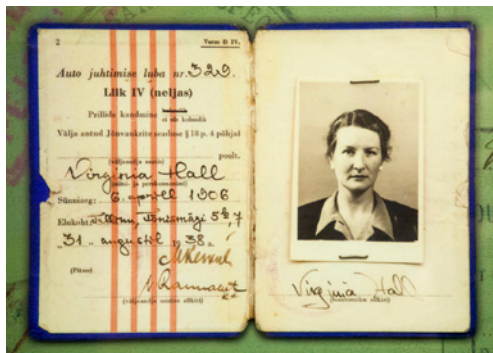 2
Vorm D IV.
Auto juhtimise luba nr. 329.
Liik IV (neljas)
Prillide kandmine kohuslik
ei ole kohuslik
Välja antud Jõuvankrite seaduse § 18 p. 4 põhjal
poolt.
(väljaandja asutus)
Virginia Hall
(nimi- ja perekonnanimi)
Sünniaeg: 6. aprill 1906
Elukoht: Tallinn, Tõnismägi 5a, 7
„31„ augustil 1938 a.
(Pitser)
(väljaandja allkiri)
Virginia Hall
(omaniku allkiri)